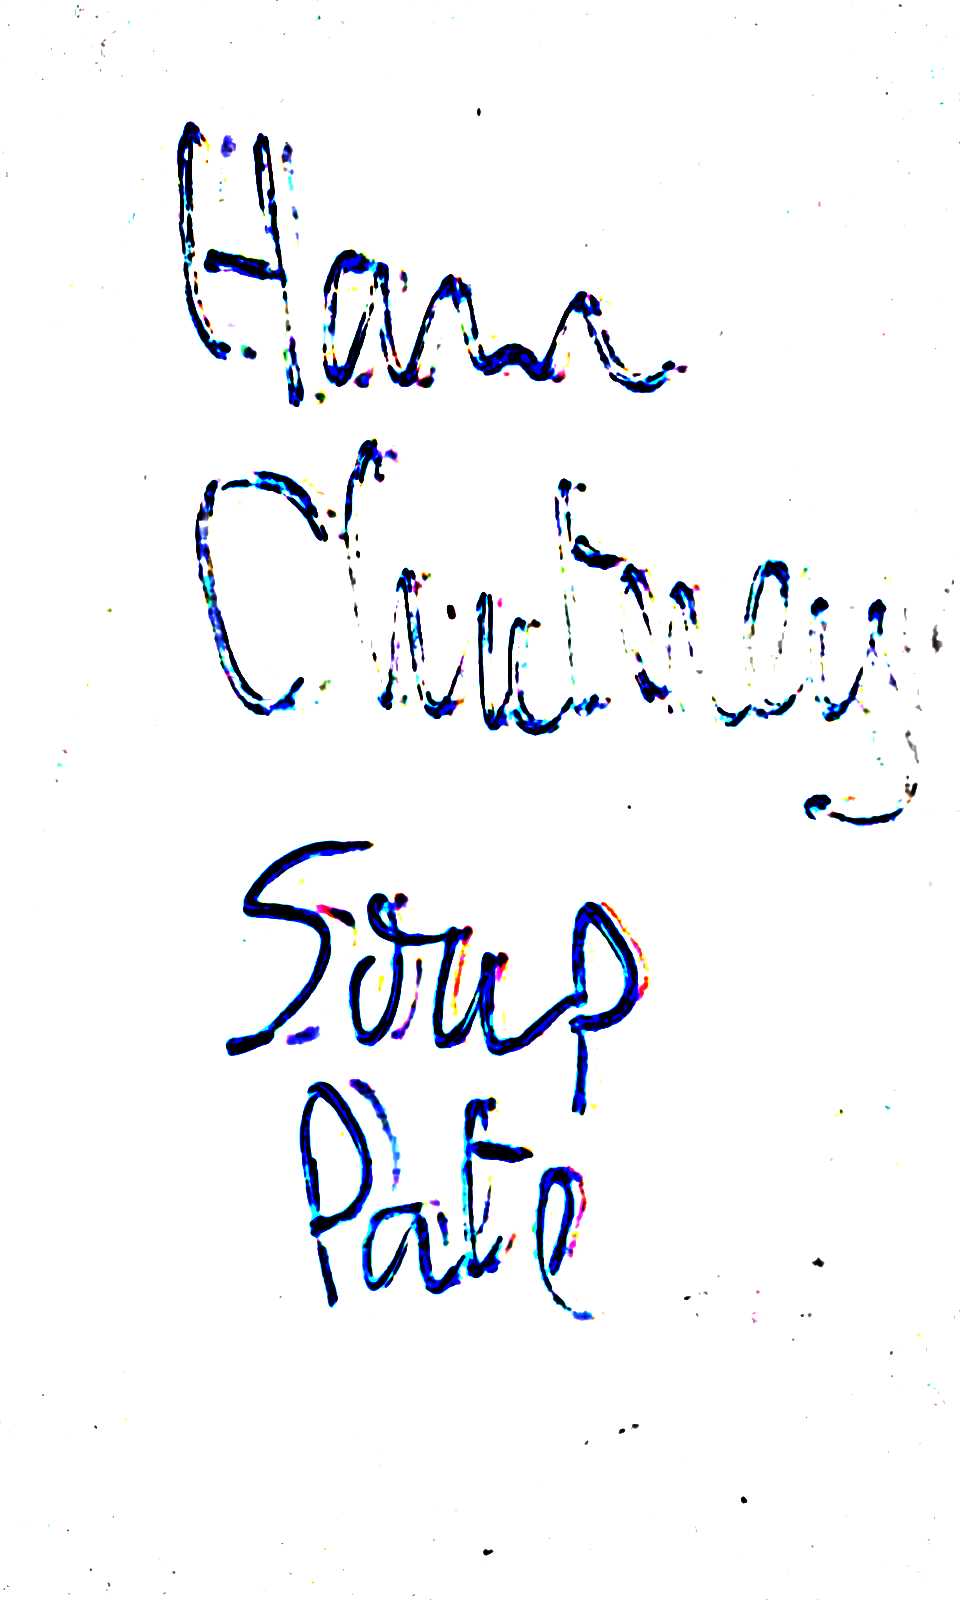 Ham
Chutney
Soup
Pate